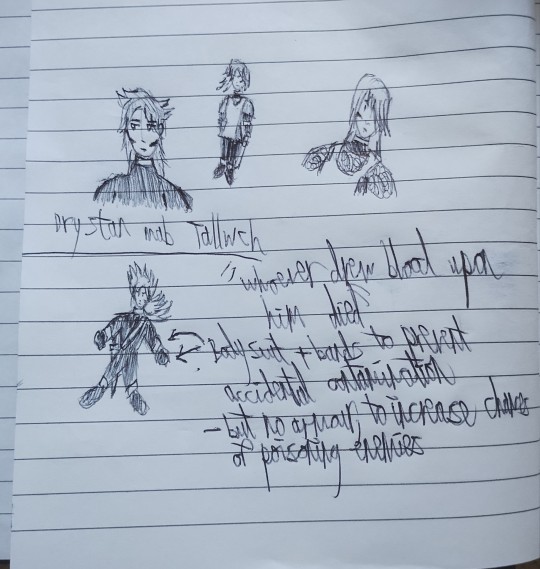 Drystan mab Tallwch
"whoever drew blood upon
him died"
- Bodysuit + bands to prevent
accidental contamination
- but no armour, to increase chances
of poisoning enemies